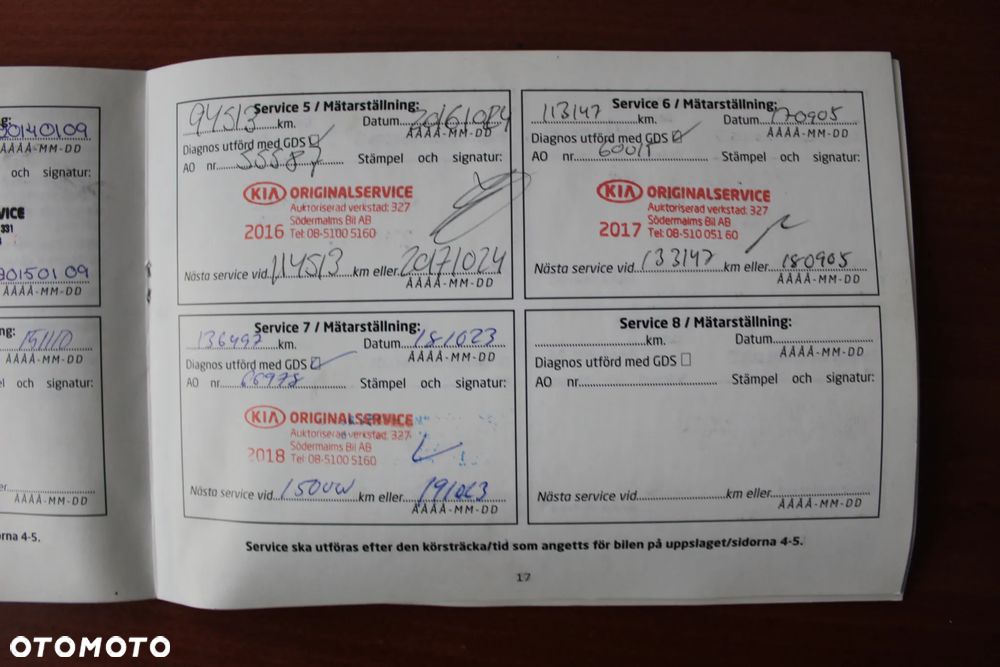 g:
20140109
ÅÅÅÅ-MM-DD
och signatur:
VICE
331
20150109
ÅÅÅÅ-MM-DD
ng:
151110
ÅÅÅÅ-MM-DD
och signatur:
ÅÅÅÅ-MM-DD
rna 4-5.
Service 5 / Mätarställning:
94513 km. Datum 20161024
ÅÅÅÅ-MM-DD
Diagnos utförd med GDS
AO nr. 55587 Stämpel och signatur:
KIA ORIGINALSERVICE
Auktoriserad verkstad: 327
Södermalms Bil AB
2016 Tel: 08-5100 5160
Nästa service vid 114513 km eller 20171024
ÅÅÅÅ-MM-DD
Service 6 / Mätarställning:
113147 km. Datum 170905
ÅÅÅÅ-MM-DD
Diagnos utförd med GDS
AO nr. Stämpel och signatur:
KIA ORIGINALSERVICE
Auktoriserad verkstad: 327
Södermalms Bil AB
2017 Tel: 08-510 051 60
Nästa service vid 133147 km eller 180905
ÅÅÅÅ-MM-DD
Service 7 / Mätarställning:
136497 km. Datum 181023
ÅÅÅÅ-MM-DD
Diagnos utförd med GDS
AO nr. 66978 Stämpel och signatur:
KIA ORIGINALSERVICE
Auktoriserad verkstad: 327
Södermalms Bil AB
2018 Tel: 08-5100 5160
Nästa service vid km eller 191023
ÅÅÅÅ-MM-DD
Service 8 / Mätarställning:
km. Datum
ÅÅÅÅ-MM-DD
Diagnos utförd med GDS
AO nr. Stämpel och signatur:
Nästa service vid km eller
ÅÅÅÅ-MM-DD
Service ska utföras efter den körsträcka/tid som angetts för bilen på uppslaget/sidorna 4-5.
17
OTOMOTO